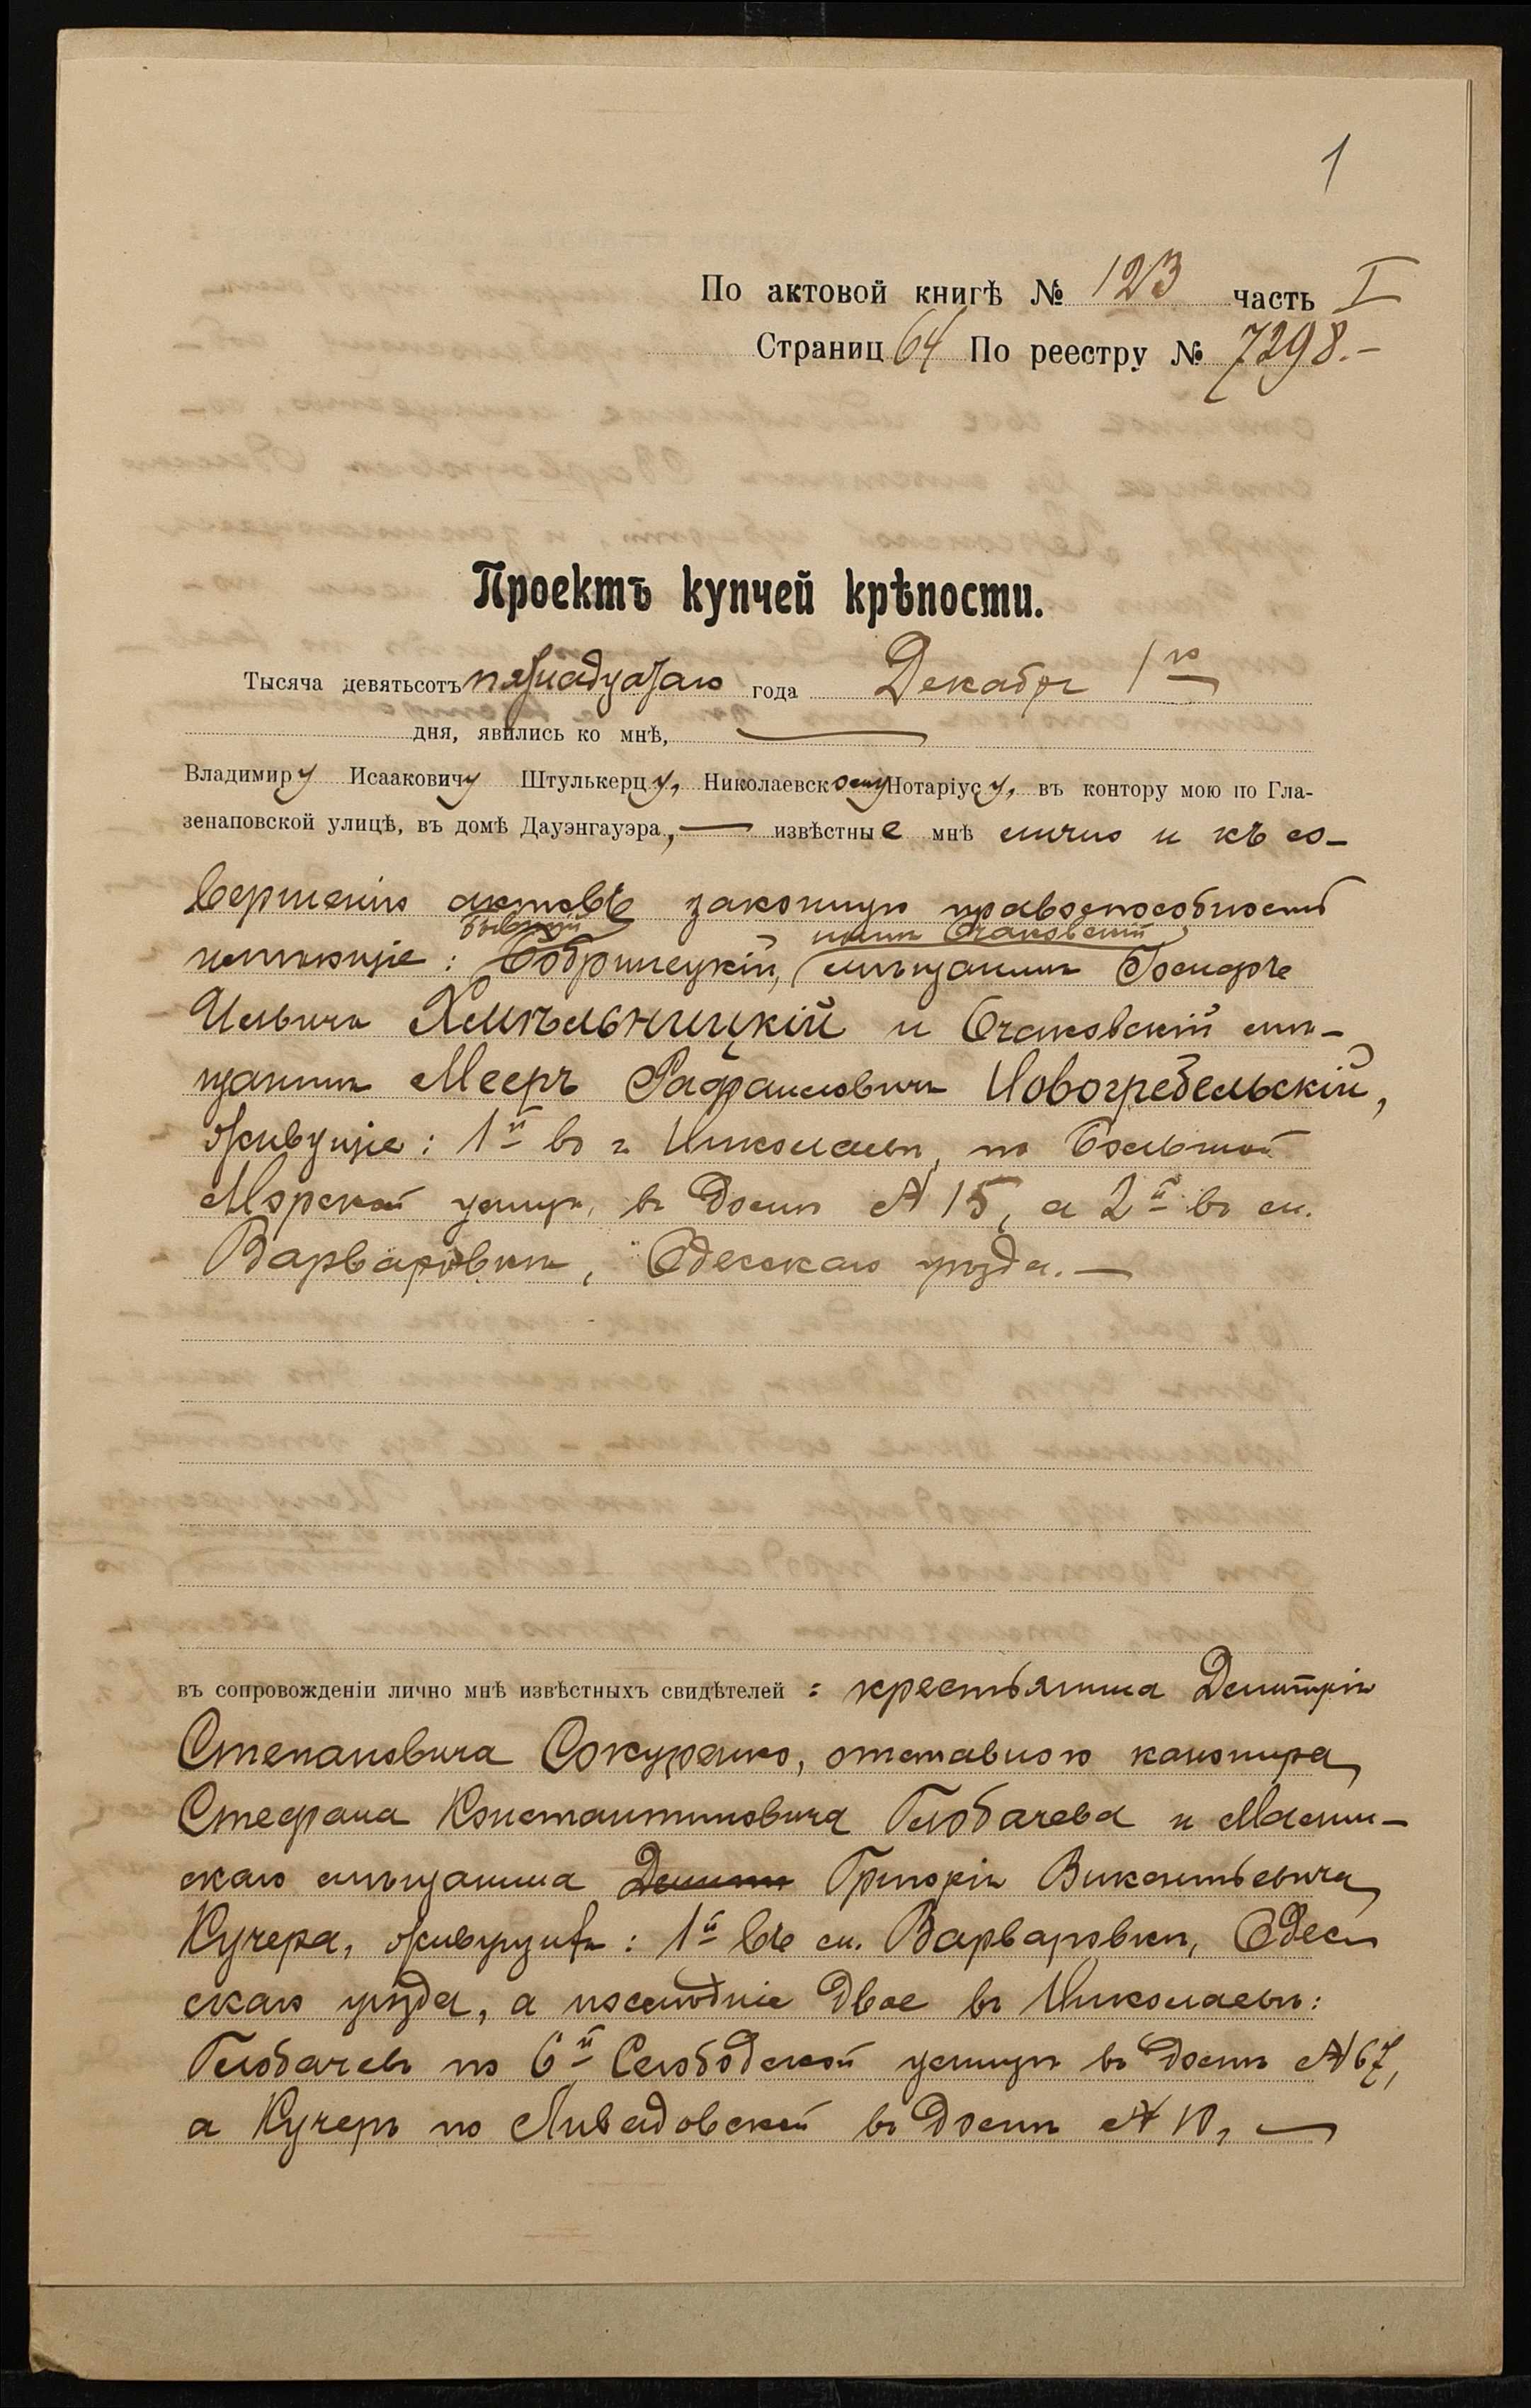 1
По актовой книгѣ № 123 часть I
Страниц 64 По реестру № 7298.-
Проектъ купчей крѣпости.
Тысяча девятьсотъ пятнадцатаго года Декабря 1го
дня, явились ко мнѣ,
Владимиру Исааковичу Штулькерцу, Николаевскому Нотаріусу, въ контору мою по Гла-
зенаповской улицѣ, въ домѣ Дауэнгауэра, извѣстные мнѣ лично и къ со-
вершенію актовъ законную правоспособность
бывшій нынѣ Очаковскій
имѣющіе: Бобринецкій, мѣщанинъ
Хмѣльницкій и Очаковскій мѣ-
щанинъ Мееръ Рафаиловичъ Новогребельскій,
живущіе: 1й въ г. Николаевѣ, по Большой
Морской улицѣ, въ домѣ № 15, а 2й въ м.
Варваровкѣ, Одесскаго уѣзда. —
въ сопровожденіи лично мнѣ извѣстныхъ свидѣтелей: крестьянина Димитрія
Степановича Сокуренко, отставного канонира
Стефана Константиновича Глобачева и
скаго мѣщанина Григорія Викентьевича
Кучера, живущихъ: 1й въ м. Варваровкѣ, Одес-
скаго уѣзда, а послѣдніе двое въ Николаевѣ:
Глобачевъ по 6й Слободской улицѣ въ домѣ № 67,
а Кучеръ по Ливадовской въ домѣ № 10, —